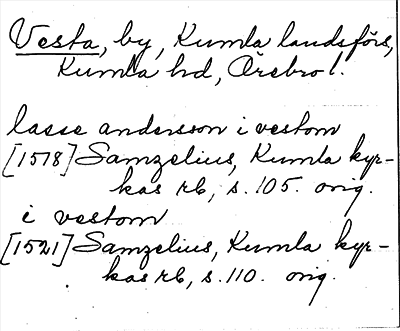 Vesta, by, Kumla landsförs,
Kumla hd, Örebro l.
lasse andersson i vestom
[1578] Samzelius, Kumla kyr-
kas rb, s. 105. orig.
i vestom
[1521] Samzelius, Kumla kyr-
kas rb, s. 110. orig.